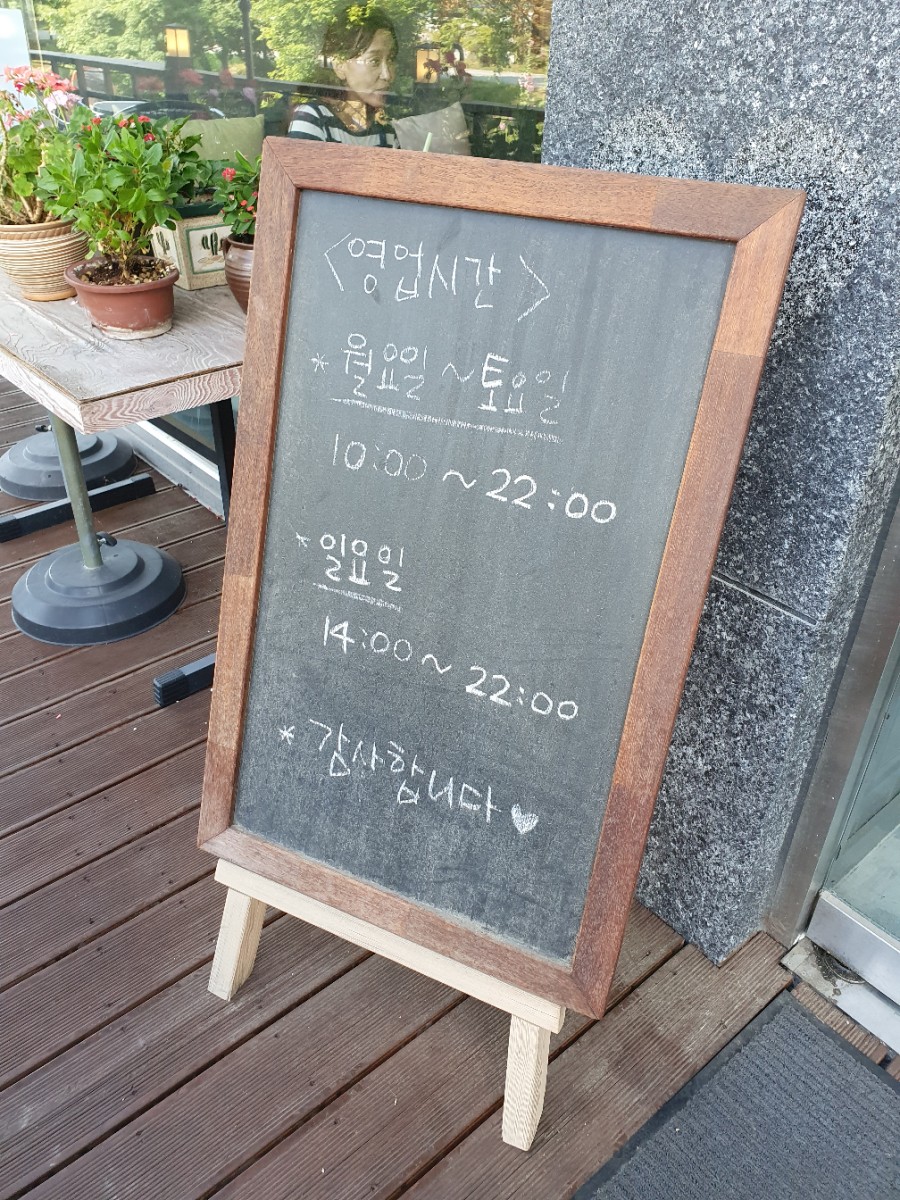 <영업시간>
* 월요일 ~ 토요일
10:00 ~ 22:00
* 일요일
14:00 ~ 22:00
* 감사합니다 ♥